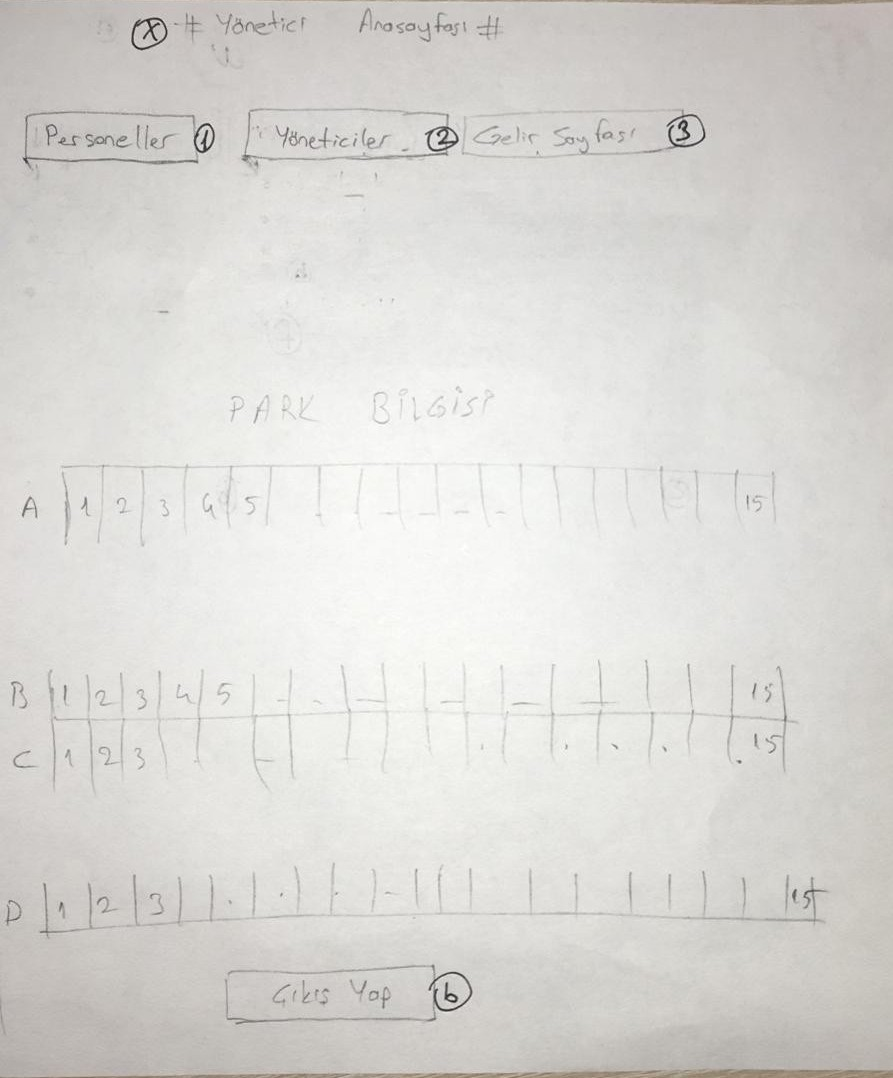 X # Yönetici Anasayfası #
Personeller 1 Yöneticiler 2 Gelir Sayfası 3
PARK BİLGİSİ
A 1 2 3 4 5 15
B 1 2 3 4 5 15
C 1 2 3 15
D 1 2 3 15
Çıkış Yap b